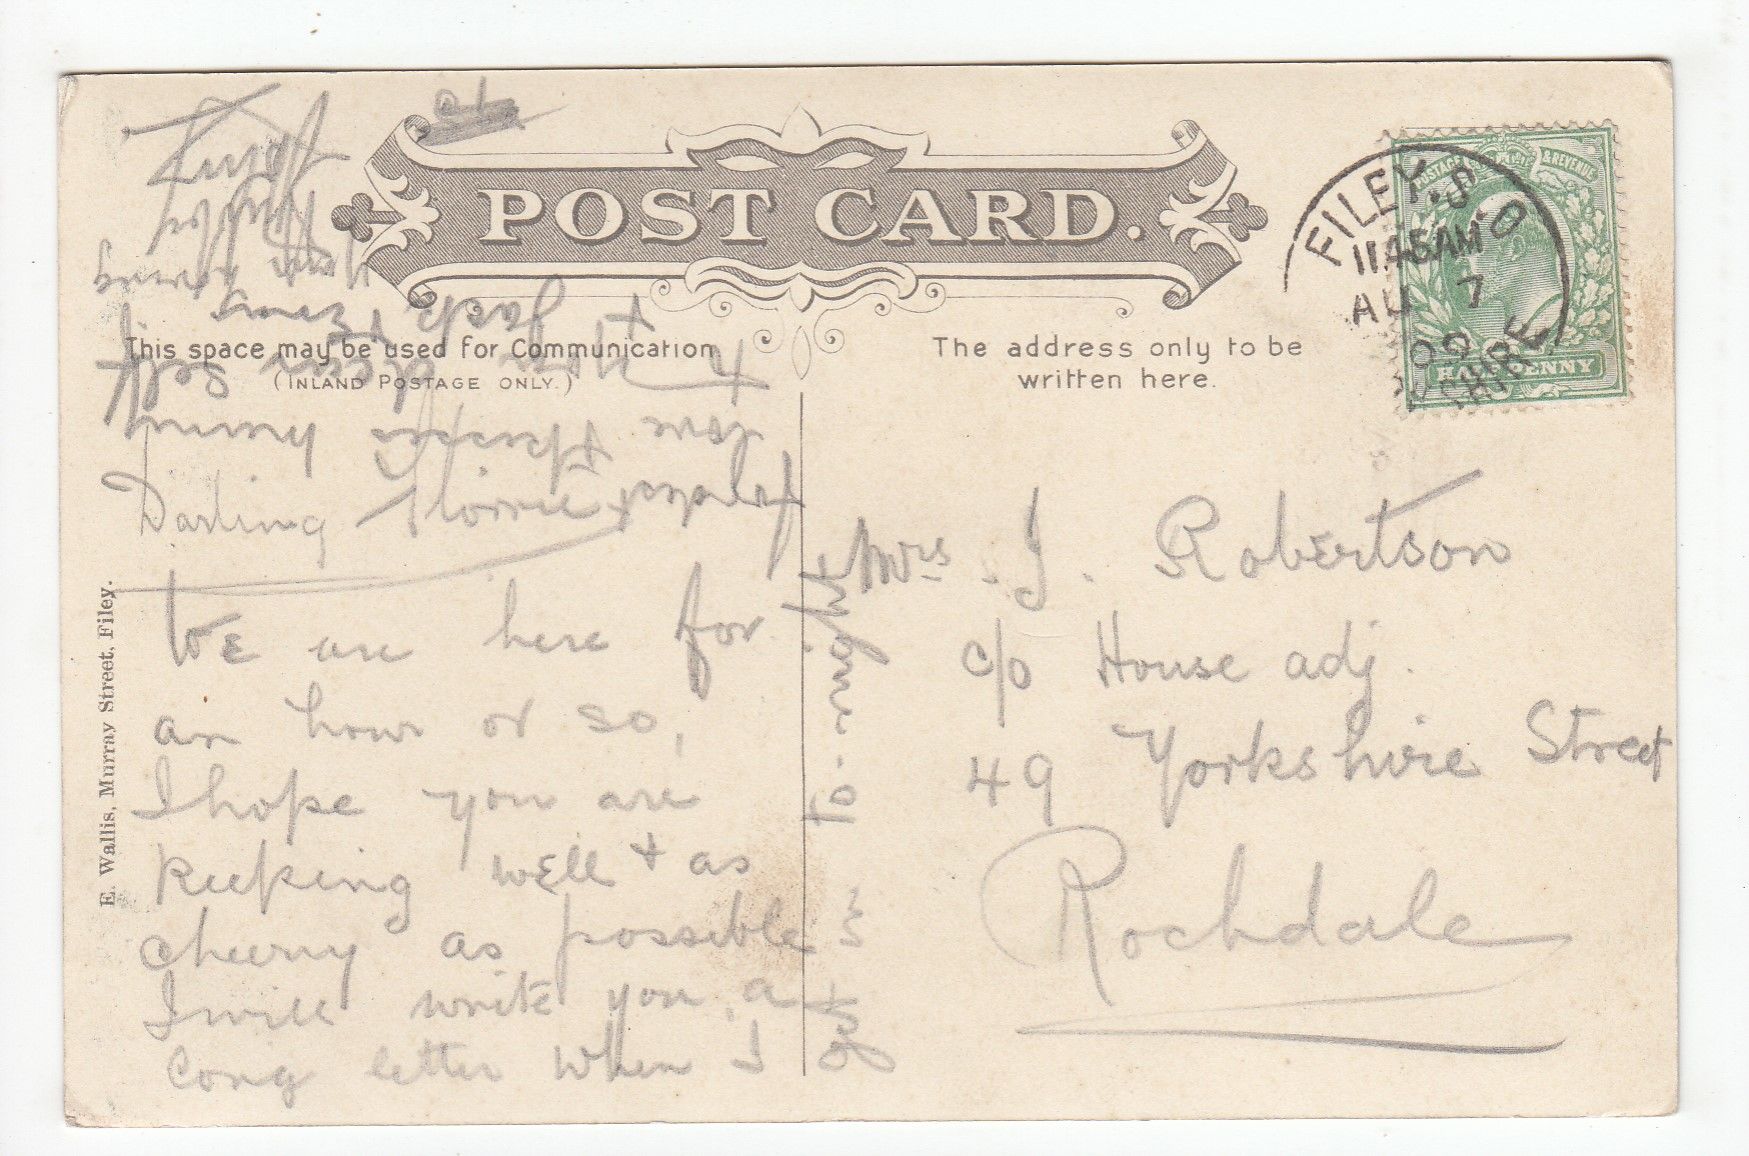 POST CARD.
This space may be used for Communication
(INLAND POSTAGE ONLY.)
The address only to be
written here.
FILEY. S. O
11 45 AM
AU 7
09
POSTAGE & REVENUE
HALFPENNY
E. Wallis, Murray Street, Filey.
Darling Florrie
We are here for
an hour or so,
I hope you are
keeping well + as
cheery as possible
I will write you a
long letter when I
get in
To-night
love
your dear self
+ Jack
Your loving
Mrs J. Robertson
c/o House adj.
49 Yorkshire Street
Rochdale